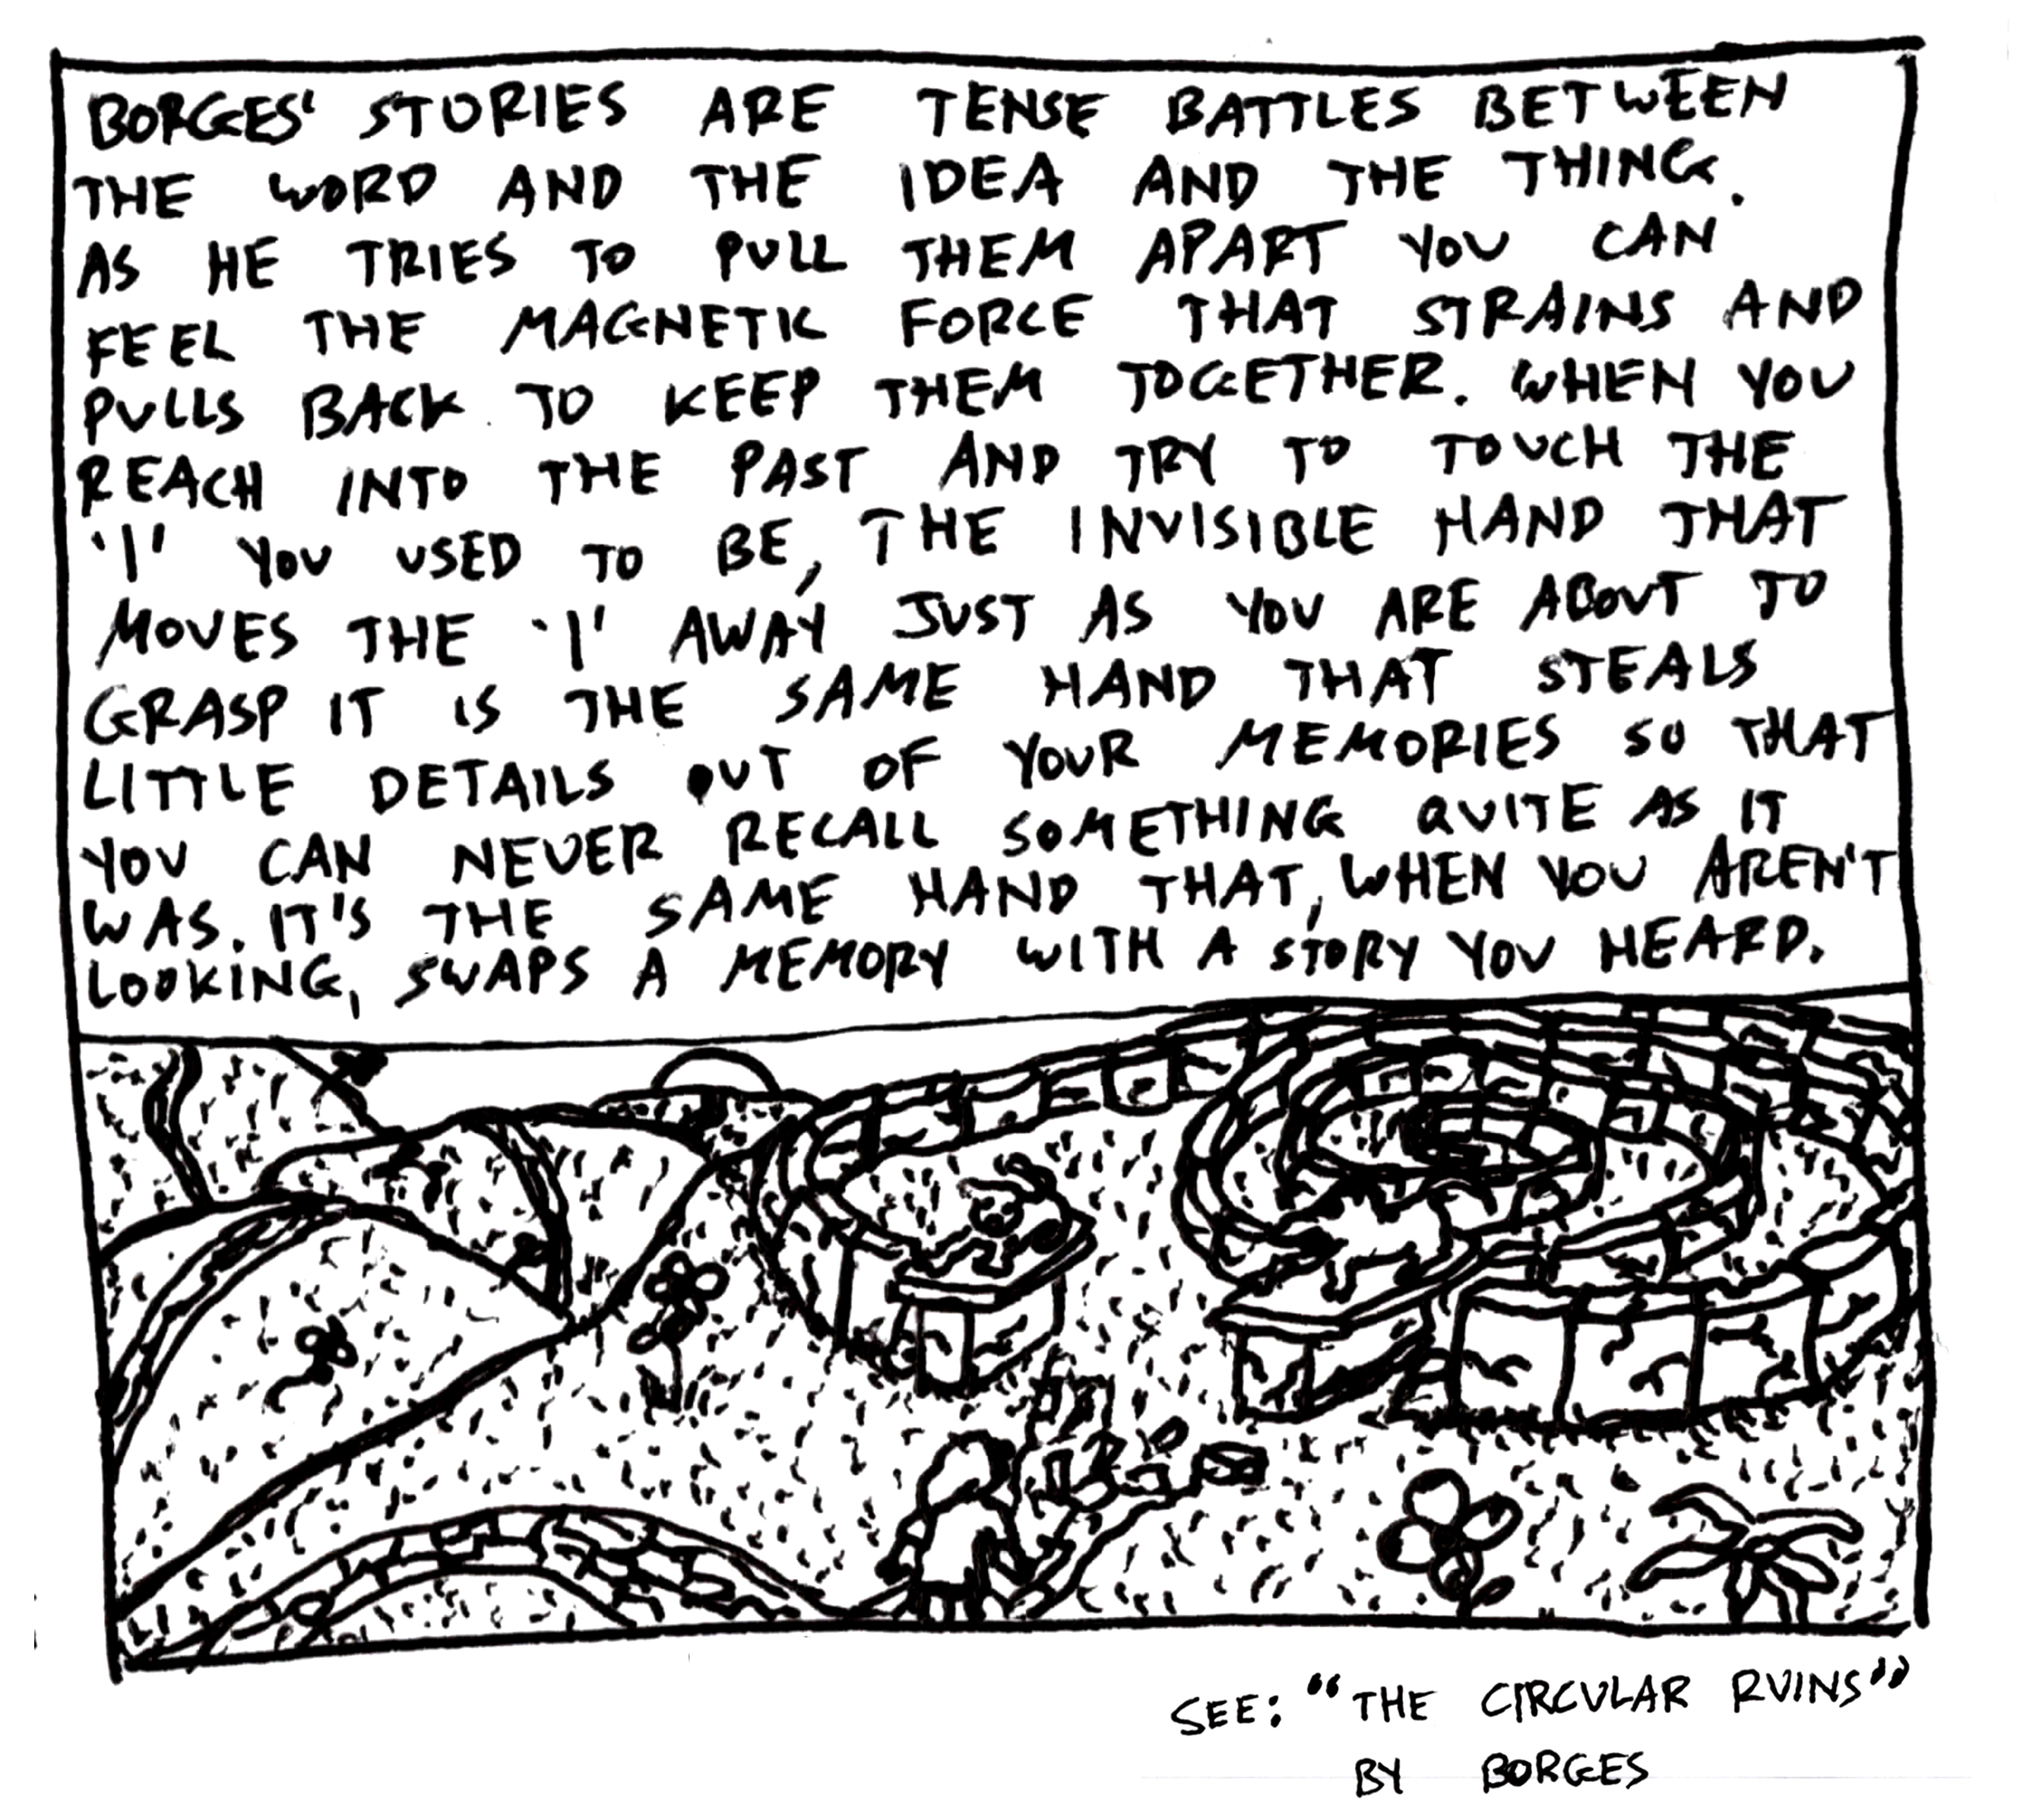 BORGES' STORIES ARE TENSE BATTLES BETWEEN
THE WORD AND THE IDEA AND THE THING.
AS HE TRIES TO PULL THEM APART YOU CAN
FEEL THE MAGNETIC FORCE THAT STRAINS AND
PULLS BACK TO KEEP THEM TOGETHER. WHEN YOU
REACH INTO THE PAST AND TRY TO TOUCH THE
'I' YOU USED TO BE, THE INVISIBLE HAND THAT
MOVES THE 'I' AWAY JUST AS YOU ARE ABOUT TO
GRASP IT IS THE SAME HAND THAT STEALS
LITTLE DETAILS OUT OF YOUR MEMORIES SO THAT
YOU CAN NEVER RECALL SOMETHING QUITE AS IT
WAS. IT'S THE SAME HAND THAT, WHEN YOU AREN'T
LOOKING, SWAPS A MEMORY WITH A STORY YOU HEARD.
SEE: "THE CIRCULAR RUINS"
BY BORGES